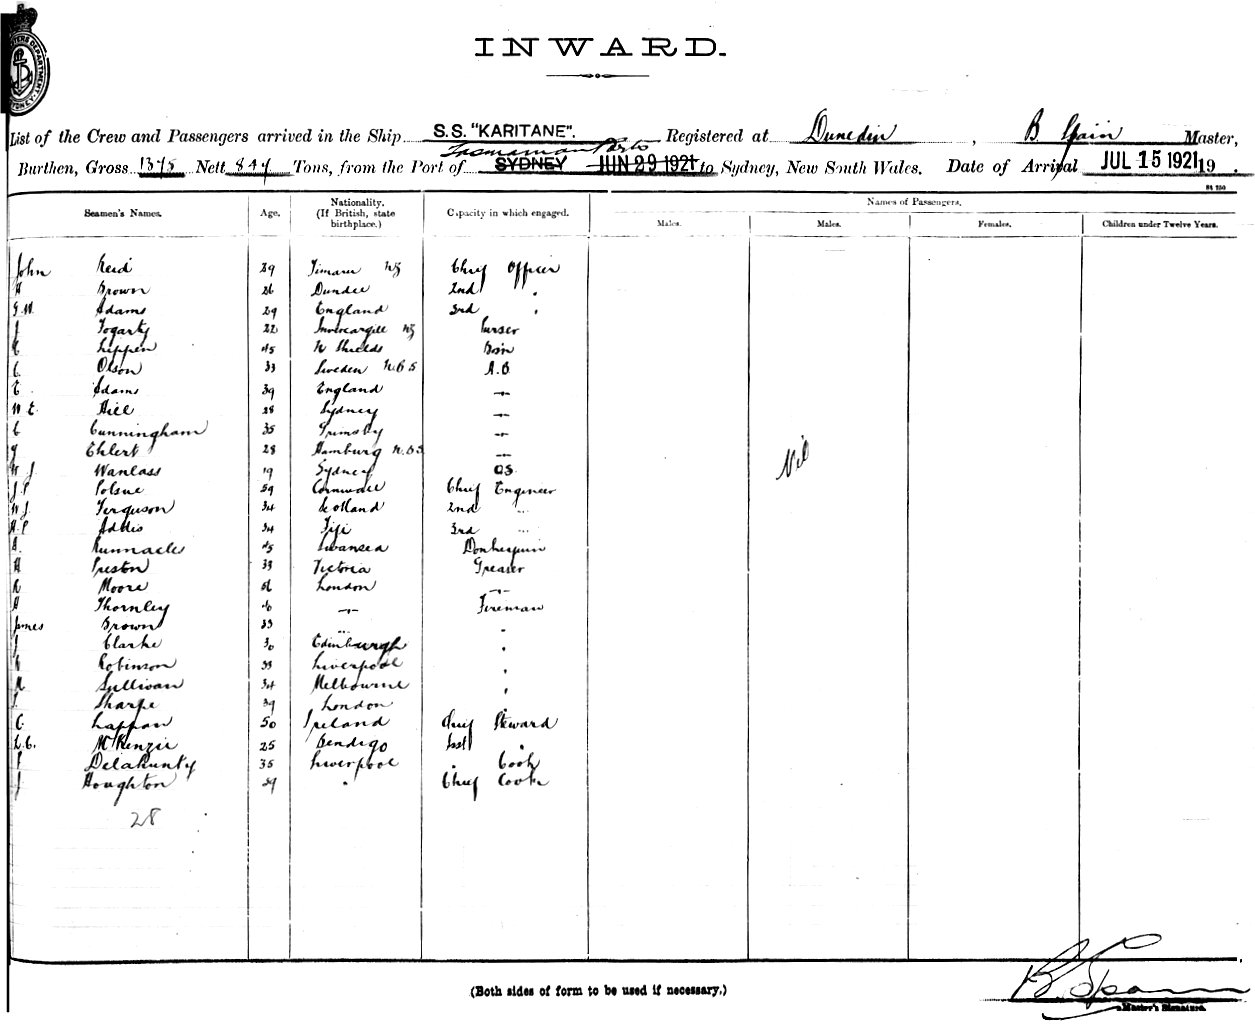 INWARD.
List of the Crew and Passengers arrived in the Ship S.S. "KARITANE". Registered at Dunedin, B Spain Master,
Tasmanian Ports
Burthen, Gross 1375 Nett 847 Tons, from the Port of SYDNEY JUN 29 1921 to Sydney, New South Wales. Date of Arrival JUL 15 1921 19 .
Seamen's Names. Age. Nationality. (If British, state birthplace.) Capacity in which engaged. Names of Passengers.
Males. Males. Females. Children under Twelve Years.
John Reid 29 Timaru NZ Chief Officer
H Brown 26 Dundee 2nd "
G.W. Adams 29 England 3rd "
J Fogarty 22 Invercargill NZ Purser
C Lippen 45 N Shields Bosn
C. Olson 33 Sweden N.B.S A.B
E. Adams 39 England —"—
W E. Hill 28 Sydney —"—
C Cunningham 35 Grimsby —"—
Ehlert 28 Hamburg N.B.S —"—
W J. Wanlass 19 Sydney OS
J.P. Polsue 59 Cornwall Chief Engineer
W J. Ferguson 34 Scotland 2nd "
A.P. Addis 34 Fiji 3rd "
Runnacles 45 Swansea Donkeyman
H Preston 33 Victoria Greaser
R Moore 56 London —"—
H Thornley 40 —"— Fireman
James Brown 33 " "
J Clarke 30 Edinburgh "
Robinson 33 Liverpool "
Sullivan 34 Melbourne "
Sharpe 39 London "
C. Lappan 50 Ireland Chief Steward
L.C. McKenzie 25 Bendigo Asst "
Delahunty 35 Liverpool " Cook
J Houghton 39 " Chief Cook
28
Nil
(Both sides of form to be used if necessary.)
B. Spain
Master's Signature.